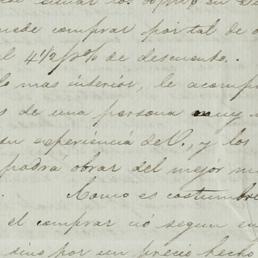 puede comprar por tal de
el 4 1/2 p% de descuento.
lo mas interior, le acomp
s de una persona muy
su esperiencia de V., y los
podrá obrar del mejor m
Como es costumbre
el comprar ció segun
sino por un precio hecho